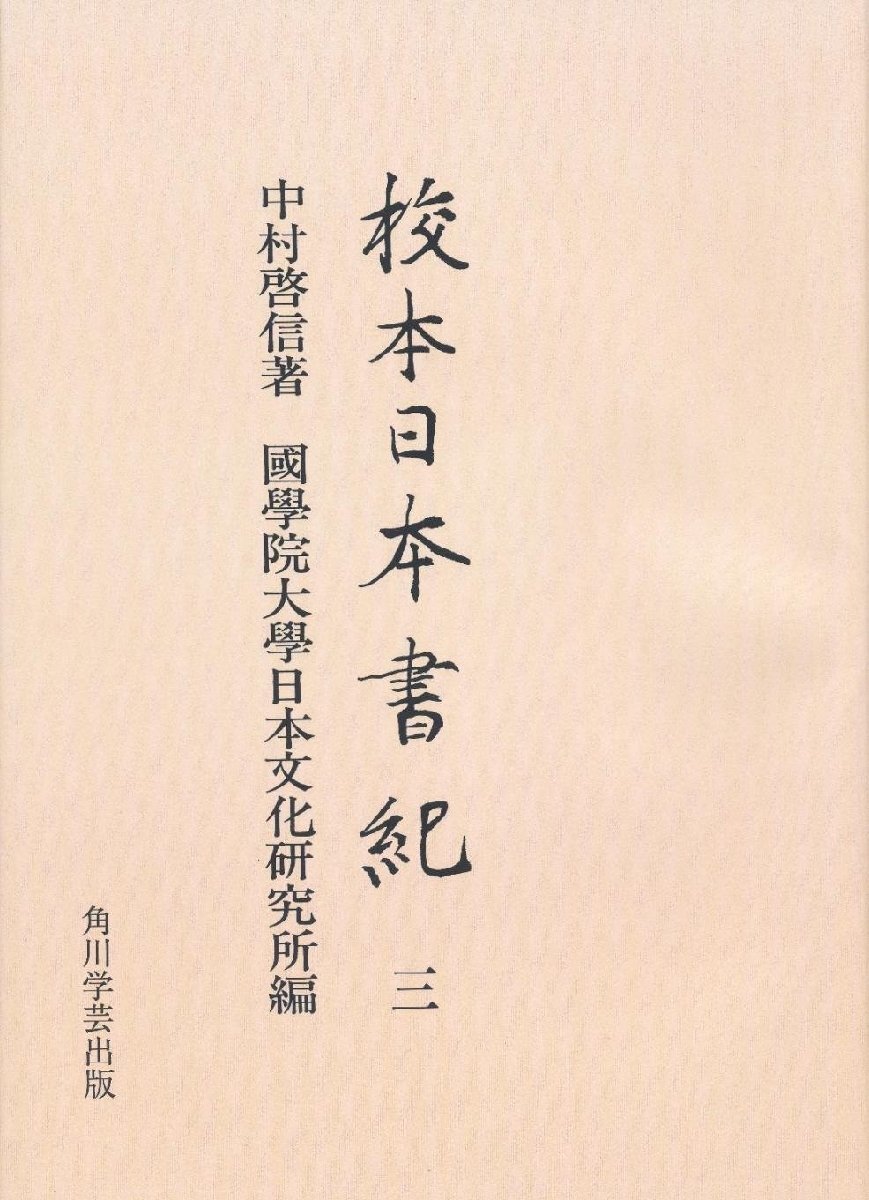 校本日本書紀 三
中村啓信著 國學院大學日本文化研究所編
角川学芸出版